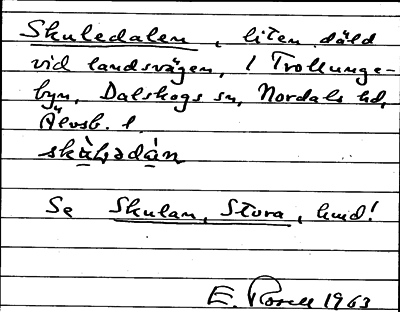 Skuledalen, liten däld
vid landsvägen, i Trollunge-
byn, Dalskogs sn, Nordals hd,
Älvsb. l.
Se Skulan, Stora, hmd!
E. Rosell 1963